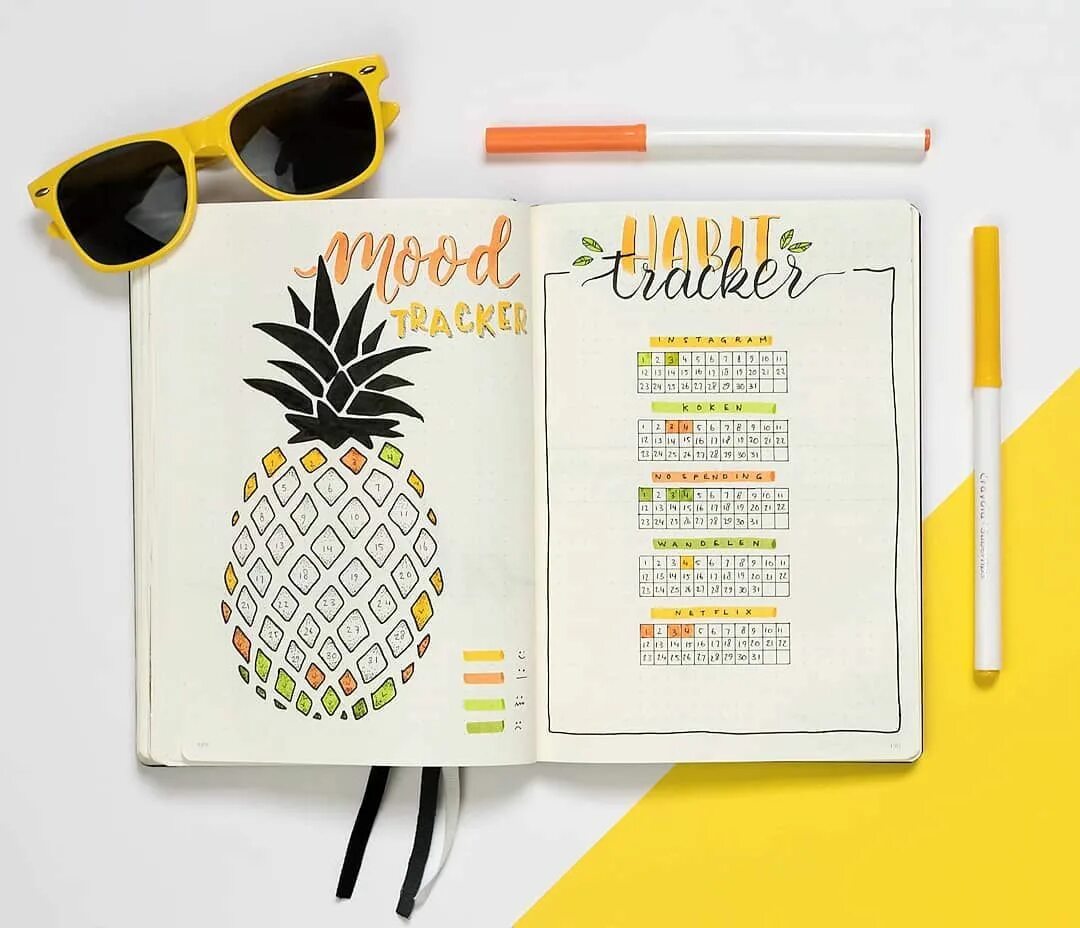 mood
TRACKER
1 2 3 4
5 6 7
8 9 10 11
12 13 14 15 16
17 18 19 20
21 22 23 24
25 26 27 28
29 30 31
HABIT
tracker
INSTAGRAM
1 2 3 4 5 6 7 8 9 10 11
12 13 14 15 16 17 18 19 20 21 22
23 24 25 26 27 28 29 30 31
KOKEN
1 2 3 4 5 6 7 8 9 10 11
12 13 14 15 16 17 18 19 20 21 22
23 24 25 26 27 28 29 30 31
NO SPENDING
1 2 3 4 5 6 7 8 9 10 11
12 13 14 15 16 17 18 19 20 21 22
23 24 25 26 27 28 29 30 31
WANDELEN
1 2 3 4 5 6 7 8 9 10 11
12 13 14 15 16 17 18 19 20 21 22
23 24 25 26 27 28 29 30 31
NETFLIX
1 2 3 4 5 6 7 8 9 10 11
12 13 14 15 16 17 18 19 20 21 22
23 24 25 26 27 28 29 30 31
Crayola